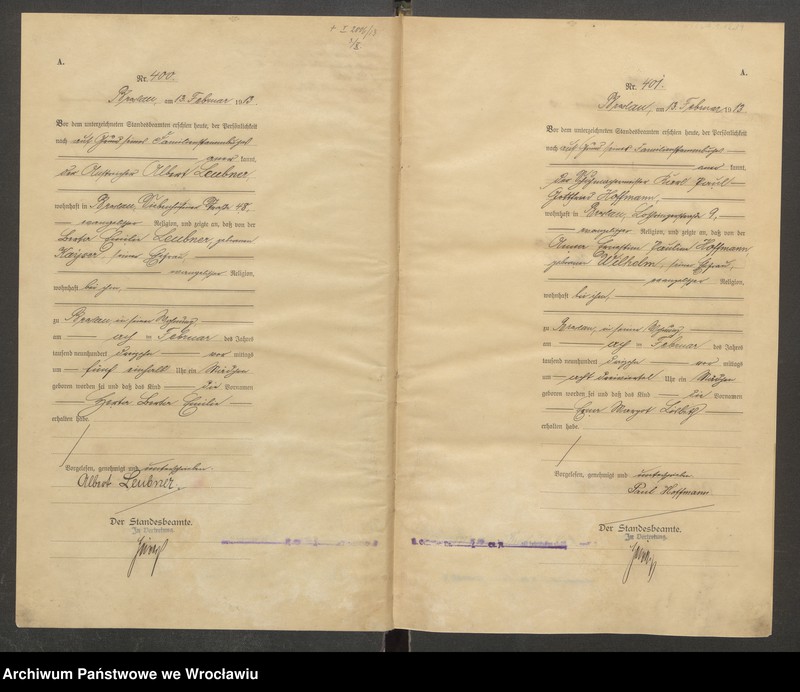 A.
Nr. 400.
Breslau, am 13. Februar 1913.
Vor dem unterzeichneten Standesbeamten erschien heute, der Persönlichkeit
nach auf Grund seines Familienstammbuches
anerkannt,
der Albert Leubner
wohnhaft in Breslau, 48,
evangelischer Religion, und zeigte an, daß von der
Berta Emilie Leubner, geborenen
seiner Ehefrau,
evangelischer Religion,
wohnhaft bei ihm,
zu Breslau in seiner Wohnung
am acht ten Februar des Jahres
tausend neunhundert dreizehn vor mittags
um fünf einhalb Uhr ein Mädchen
geboren worden sei und daß das Kind die Vornamen
Herta Berta Emilie
erhalten habe.
Vorgelesen, genehmigt und unterschrieben.
Albert Leubner.
Der Standesbeamte.
In Vertretung.
A.
Nr. 401.
Breslau, am 13. Februar 1913.
Vor dem unterzeichneten Standesbeamten erschien heute, der Persönlichkeit
nach auf Grund seines Familienstammbuches
anerkannt,
der Karl Paul
Gotthard Hoffmann,
wohnhaft in Breslau, 9,
evangelischer Religion, und zeigte an, daß von der
Anna Ernestine Pauline Hoffmann
geborenen Wilhelm, seiner Ehefrau,
evangelischer Religion,
wohnhaft bei ihm,
zu Breslau, in seiner Wohnung
am acht ten Februar des Jahres
tausend neunhundert dreizehn vor mittags
um acht dreiviertel Uhr ein Mädchen
geboren worden sei und daß das Kind die Vornamen
Erna Margot
erhalten habe.
Vorgelesen, genehmigt und unterschrieben
Paul Hoffmann
Der Standesbeamte.
In Vertretung.
Archiwum Państwowe we Wrocławiu